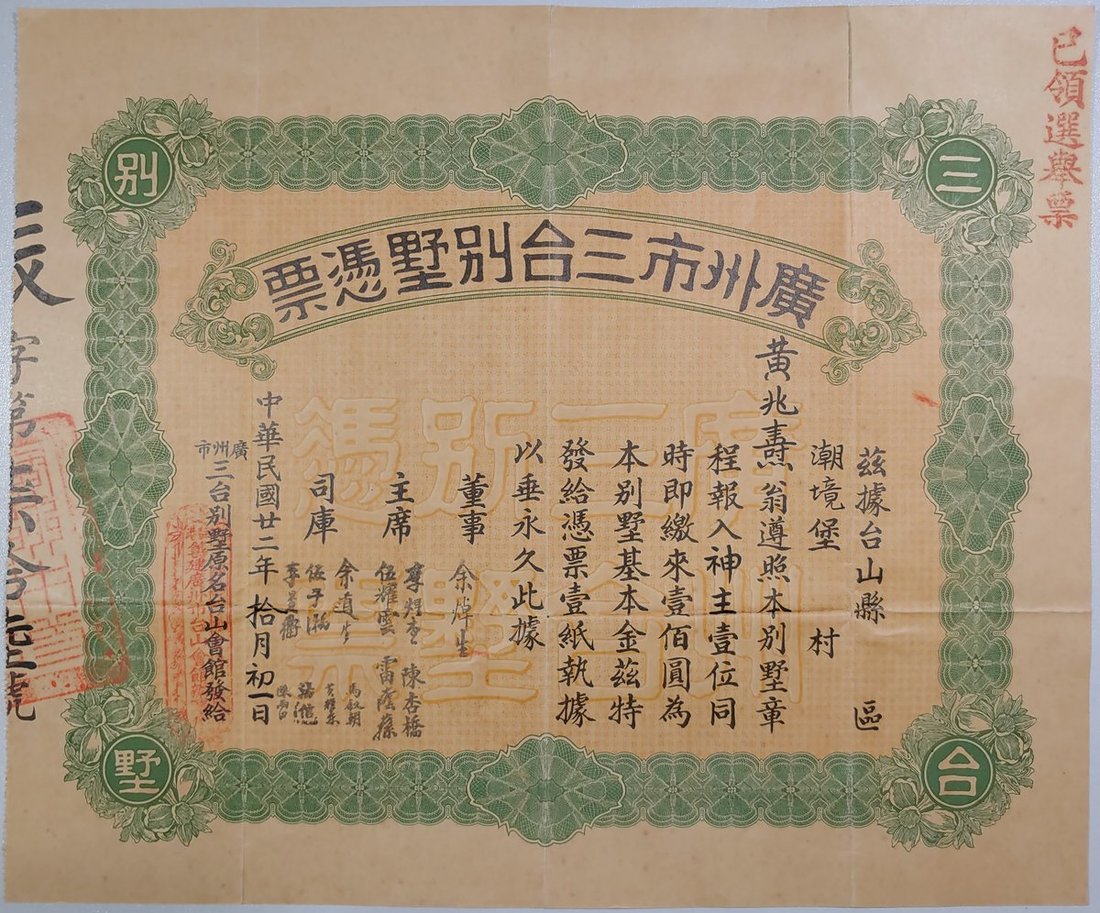 已領選舉票
三
台
別
墅
廣州市三台別墅憑票
茲據台山縣 區
潮境堡 村
黃兆燾翁遵照本別墅章
程報入神主壹位同
時即繳來壹佰圓為
本別墅基本金茲特
發給憑票壹紙執據
以垂永久此據
董事 余倬生
陳杏橋
主席 伍耀雲 雷蔭蓀
司庫 余道生
伍于瀚
中華民國廿二年拾月初一日
廣州市三台別墅原名台山會館發給
字第
號